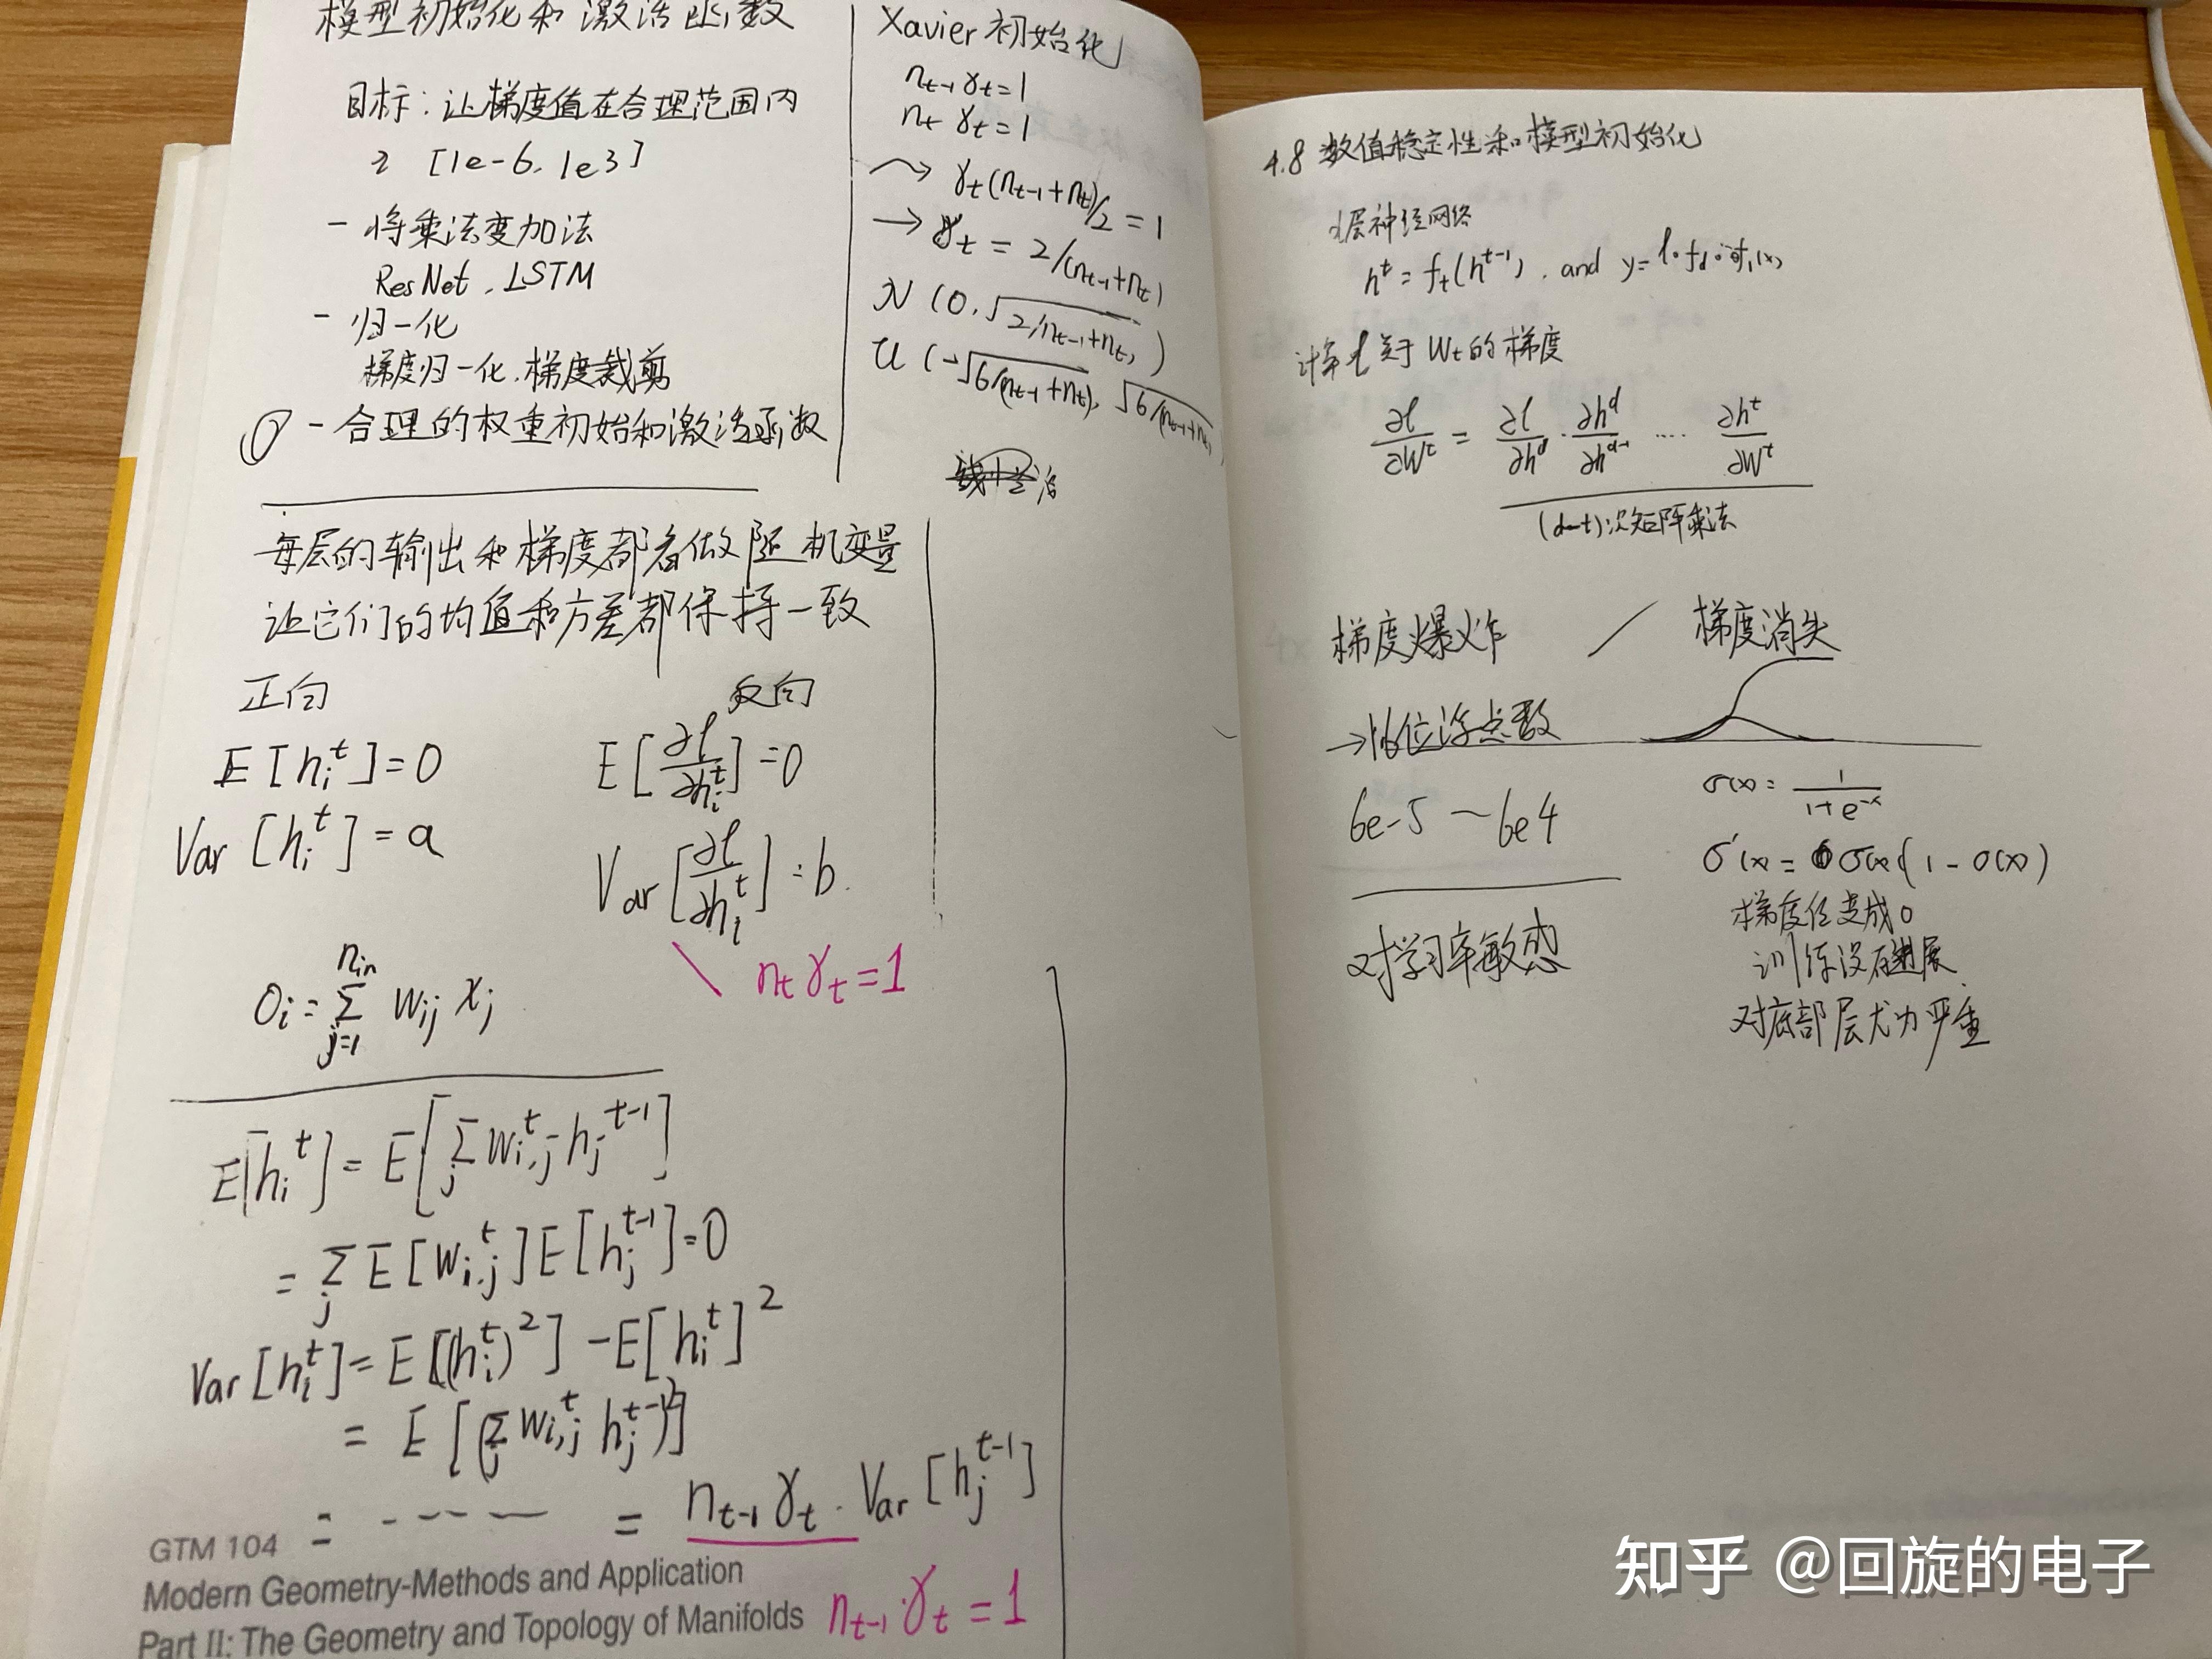 模型初始化和激活函数
目标：让梯度值在合理范围内
[1e-6, 1e3]
- 将乘法变加法
ResNet, LSTM
- 归一化
梯度归一化, 梯度裁剪
- 合理的权重初始和激活函数
每层的输出和梯度都看做随机变量
让它们的均值和方差都保持一致
正向
E[h_i^t]=0
Var[h_i^t]=a
反向
E[∂l/∂h_i^t]=0
Var[∂l/∂h_i^t]=b.
n_t γ_t=1
O_i=Σ_{j=1}^{n_in} w_ij x_j
E[h_i^t]=E[Σ_j w_{i,j}^t h_j^{t-1}]
=Σ_j E[w_{i,j}^t]E[h_j^{t-1}]=0
Var[h_i^t]=E[(h_i^t)^2]-E[h_i^t]^2
=E[(Σ_j w_{i,j}^t h_j^{t-1})^2]
= ---- = n_{t-1} γ_t · Var[h_j^{t-1}]
n_{t-1} · γ_t = 1
GTM 104
Modern Geometry-Methods and Application
Part II: The Geometry and Topology of Manifolds
Xavier 初始化
n_{t-1} γ_t=1
n_t γ_t=1
→ γ_t(n_{t-1}+n_t)/2=1
→ γ_t=2/(n_{t-1}+n_t)
N(0, √(2/(n_{t-1}+n_t)))
U(-√(6/(n_{t-1}+n_t)), √(6/(n_{t-1}+n_t)
4.8 数值稳定性和模型初始化
d层神经网络
h^t=f_t(h^{t-1}), and y=l∘f_d∘…∘f_1(x)
计算l关于W_t的梯度
∂l/∂W^t = ∂l/∂h^d · ∂h^d/∂h^{d-1} ···· ∂h^t/∂W^t
(d-t)次矩阵乘法
梯度爆炸 / 梯度消失
→16位浮点数
6e-5 ~ 6e4
对学习率敏感
σ(x)=1/(1+e^{-x})
σ'(x)=σ(x)(1-σ(x))
梯度值变成0
训练没有进展
对底部层尤为严重
知乎 @回旋的电子